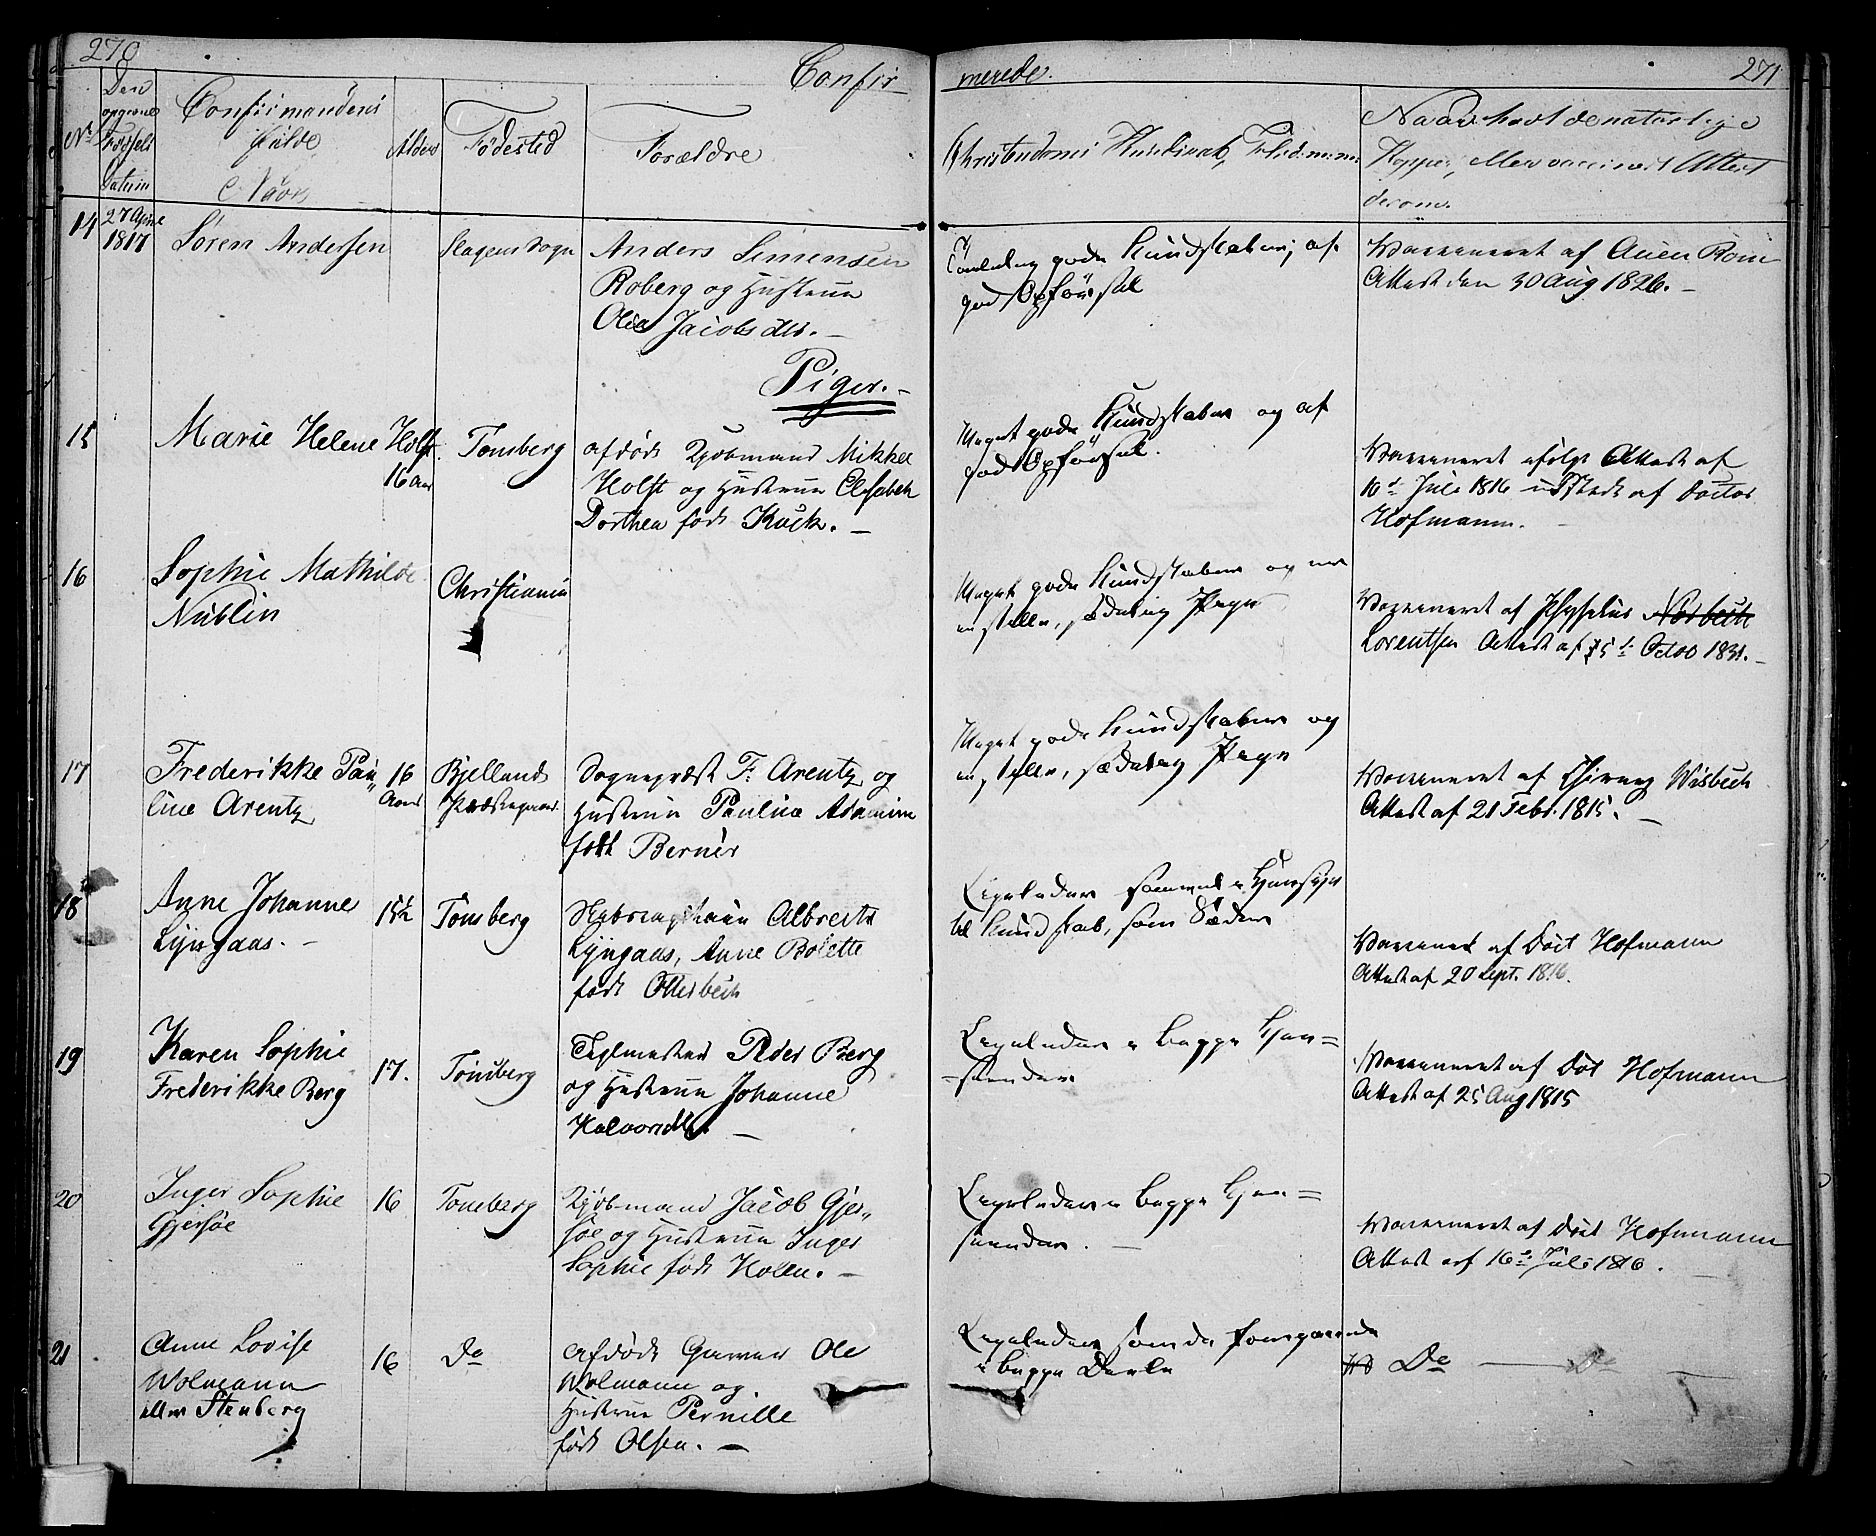 270
Confir-
merede.
271
No
Den opgivne Fødsels Datum
Confirmandens fulde Navn
Alder
Fødested
Forældre
Christendoms Kundskab,
Naar havt de naturlige
Kopper, eller vaccineret Attest
derom.
14
27 April
1817
Søren Andersen
Slagens Sogn
Anders Simensen
Roberg og Hustrue
Olea Jacobsdtr. —
gode Kundskaber, af
god Opførsel
Vaccineret af
Attest den 30 Aug 1826. —
Piger. —
15
Marie Helene Holst
16 Aar
Tønsberg
afdøde Kjøbmand Mikkel
Holst og Hustrue Elisabeth
Dorthea født Kück. —
Meget gode Kundskaber og af
god Opførsel.
Vaccineret ifølge Attest af
16d Juli 1816 udstedt af Doctor
Hofmann. —
16
Sophie Mathilde
Nüblin
Christiania
Meget gode Kundskaber og en
stille, sædelig Pige
Vaccineret af Physikus Norbech
Lorentsen Attest af 15d Octob 1831. —
17
Frederikke Pau„
line Arentz
16
Aar
Bjellands
Præstegaard
Sognepræst F. Arentz og
Hustrue Pauline Adamine
født Berner
Meget gode Kundskaber og
en stille, sædelig Pige
Vaccineret af Chirurg Wisbech
Attest af 21 Febr. 1815. —
18
Anne Johanne
Lyngaas. —
15½
Tønsberg
Albrecht
Lyngaas, Anne Bolette
født Otterbech
Ligeledes saavel i Hensyn
til Kundskab, som Sæder
Vaccineret af Doct Hofmann
Attest af 20 Sept. 1816.
19
Karen Sophie
Frederikke Berg
17.
Tønsberg
Teglmester Peder Berg
og Hustrue Johanne
Halvorsdtr. —
Ligeledes i begge Hen=
=seender
Vaccineret af Doct Hofmann
Attest af 25 Aug 1815
20
Inger Sophie
Gjersøe
16
Tønsberg
Kjøbmand Jacob Gjer„
søe og Hustrue Inger
Sophie født Holen. —
Ligeledes i begge Hen=
seender. —
Vaccineret af Doct Hofmann
Attest af 16d Juli 1816.
21
Anne Lovise
Wolmann
eller Stenberg
16
Do
Afdøde Garver Ole
Wolmann og
Hustrue Pernille
født Olsen. —
Ligeledes som de foregaaende
i begge Deele
Do — Do